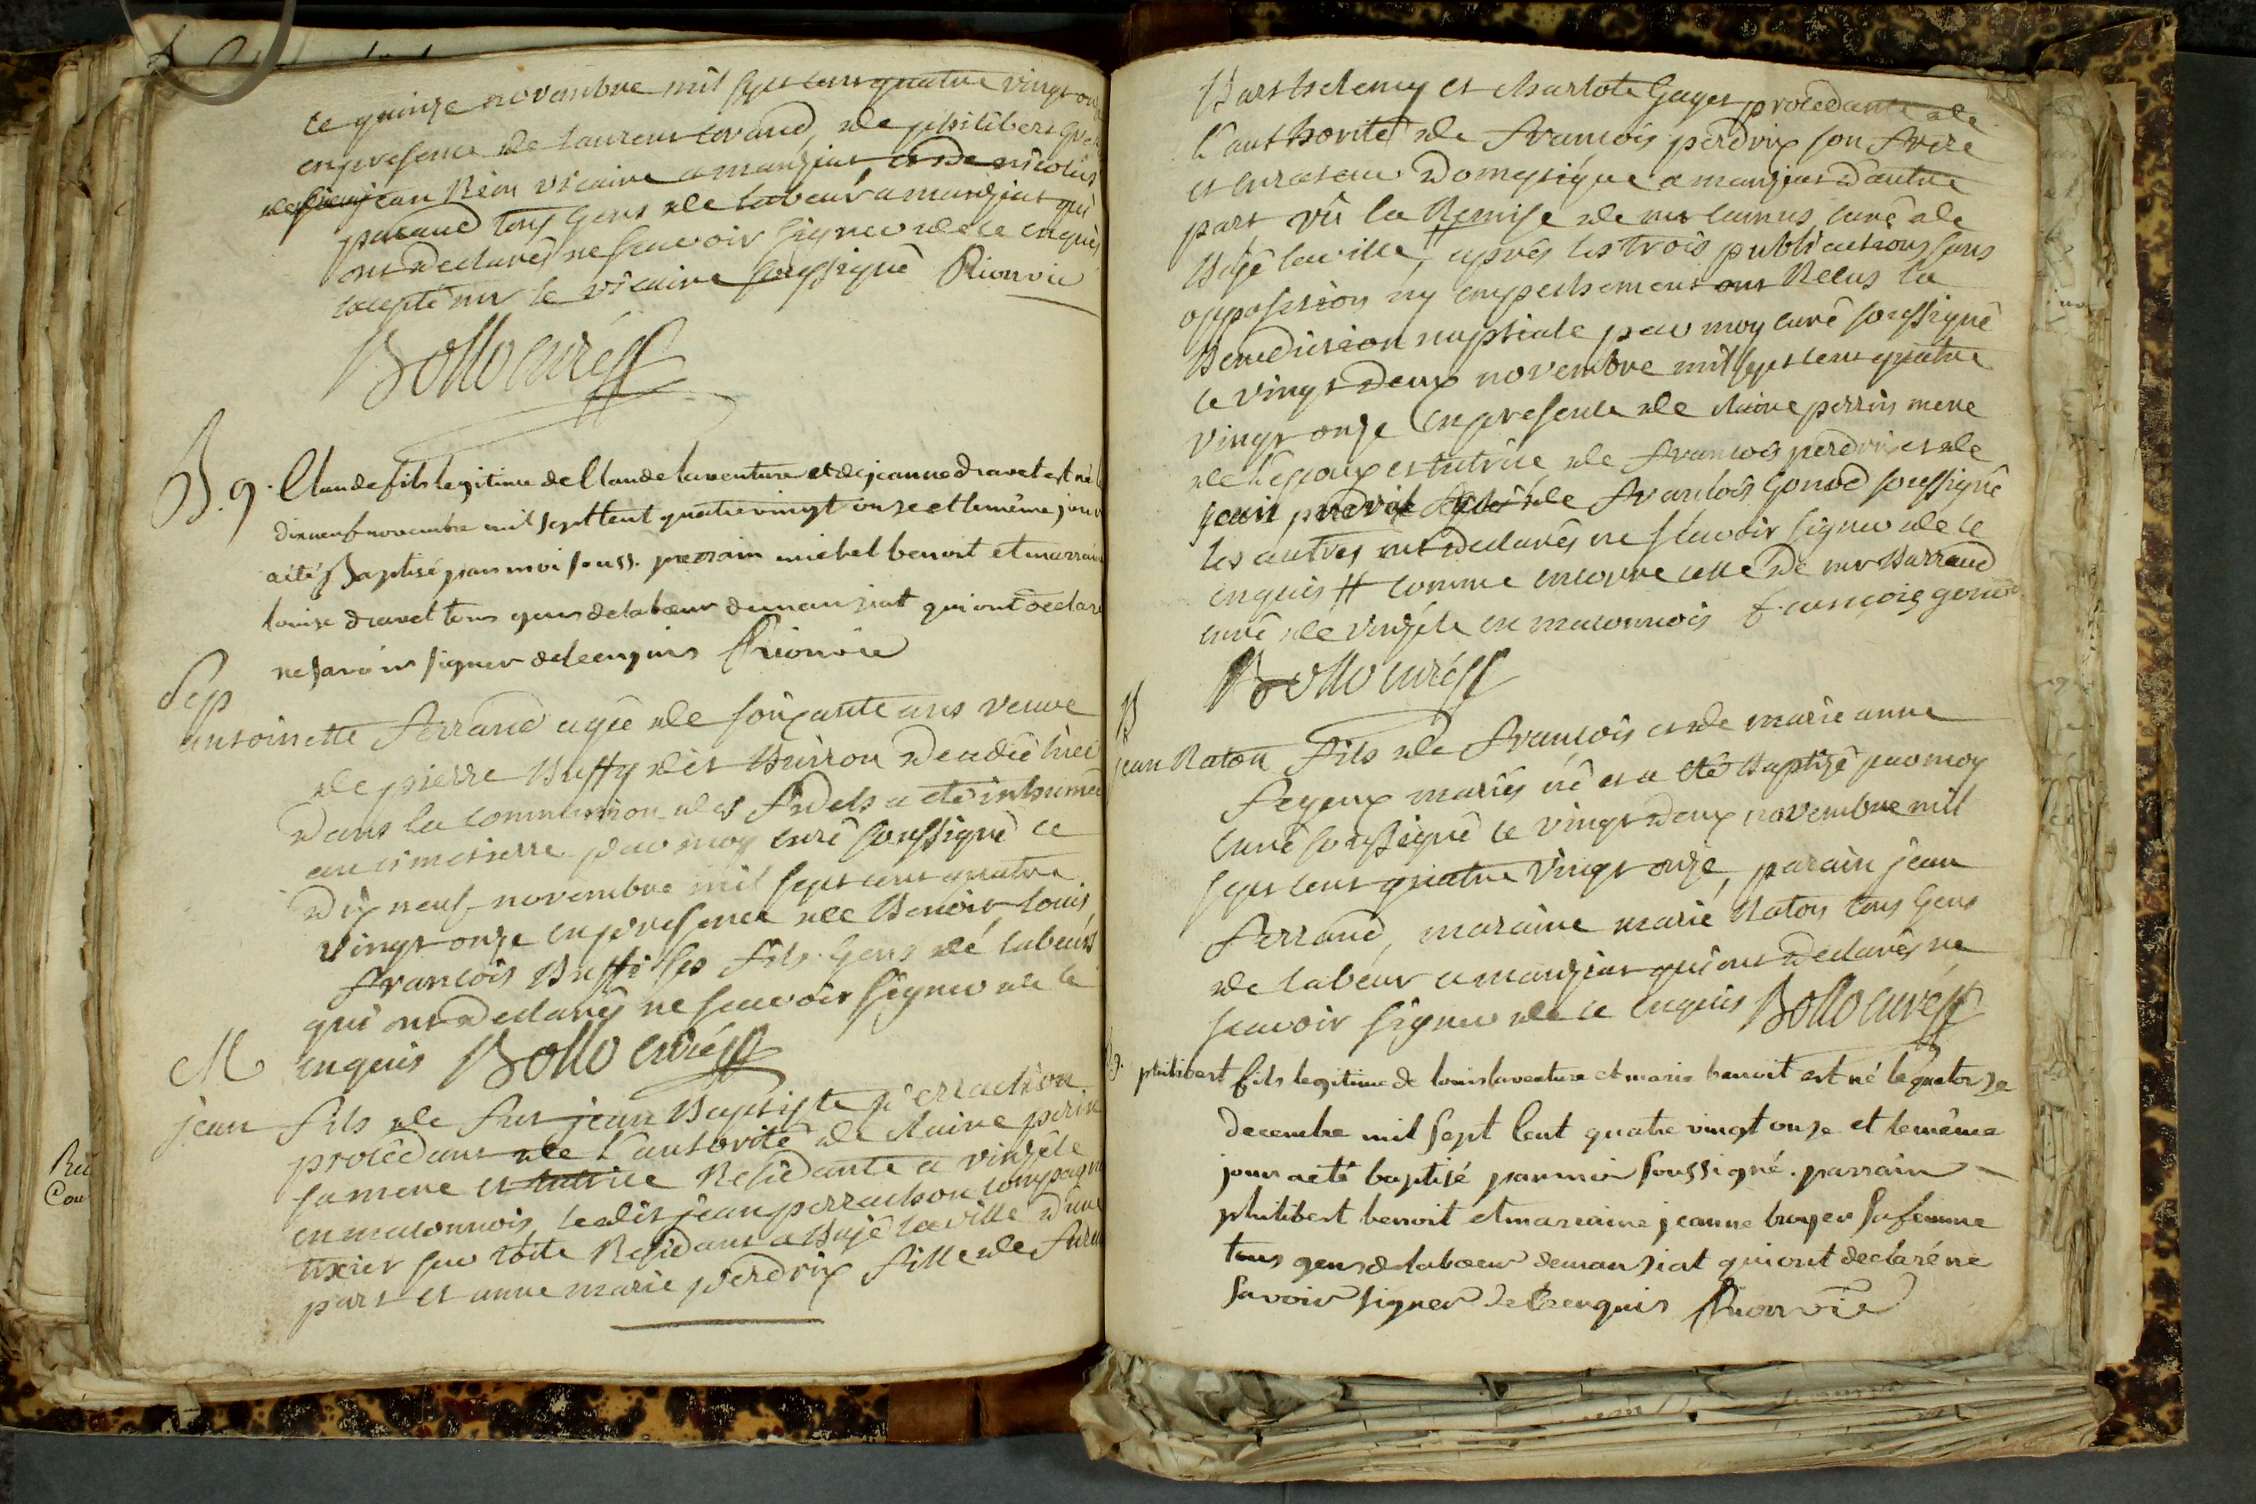 ce quinze novembre mil sept cent quatre vingt
en presence de Laurent de philibert
jean vicaire a manziat et de nicolas
tous gens de labeur a manziat qui
ont declarés ne scavoir signer de ce enquis
excepté mr le vicaire soussigné Rion vic
Bollo curé
B. g. Claude fils legitime de Claude laventure et de jeanne dravet est né le
dix neuf novembre mil sept cent quatre vingt onze et le même jour
a été Baptisé par moi souss. parrain michel benoit et marraine
louise dravet tous gens de labœur de manziat qui ont declaré
ne savoir signer de ce enquis Rion vic
Sep
antoinette ferrand agée de soixante ans veuve
de pierre Buffy dit Buirron decedée hier
dans la communion des fidels a eté inhumée
au cimetierre par moy curé soussigné ce
dix neuf novembre mil sept cent quatre
vingt onze en presence de Benoit louis
françois Buffi ses fils gens de labeurs
qui ont declarés ne scavoir signer de ce
enquis Bollo curé
M
jean fils de fut jean Baptiste perrachon
procedant de l'authorité de Claire perrin
sa mere et tutrice Residante a vinzele
en maconnois, ledit jean perrachon compagnon
tixier sur toile Residant a Bajé la ville d'une
part et anne marie perdrix fille de furent
Barthelemy et charlote Guyet procedante de
l'authorité de françois perdrix son frere
et curateur domestique a manziat d'autre
part vû la Remise de mr camus curé de
Bajé la ville, # aprés les trois publications sans
opposition ny empechement ont Recus la
Benediction nuptiale par moy curé soussigné
le vingt deux novembre mil sept cent quatre
vingt onze en presence de Claire perrin mere
de l'epoux et tutrice de francois perdrix et de
jean perdrix de francois Gonod soussigné
les autres ont declarés ne scavoir signer de ce
enquis # comme encorre celle de mr Barraud
curé de vinzele en maconnois françois gonod
Bollo curé
B
jean Raton fils de francois et de marie anne
feyeux mariés né et a eté Baptizé par moy
curé soussigné le vingt deux novembre mil
sept cent quatre vingt onze, parain jean
ferrand, maraine marie Raton tous gens
de labeur a manziat qui ont declarés ne
scavoir signer de ce enquis Bollo curé
philibert fils legitime de louis laventure et marie benoit est né le quatorze
decembre mil sept Cent quatre vingt onze et le même
jour a eté baptisé par moi soussigné. parrain
philibert benoit et marraine jeanne broyer sa femme
tous gens de labœur de manziat qui ont declaré ne
savoir signer de Ce enquis Rion vic